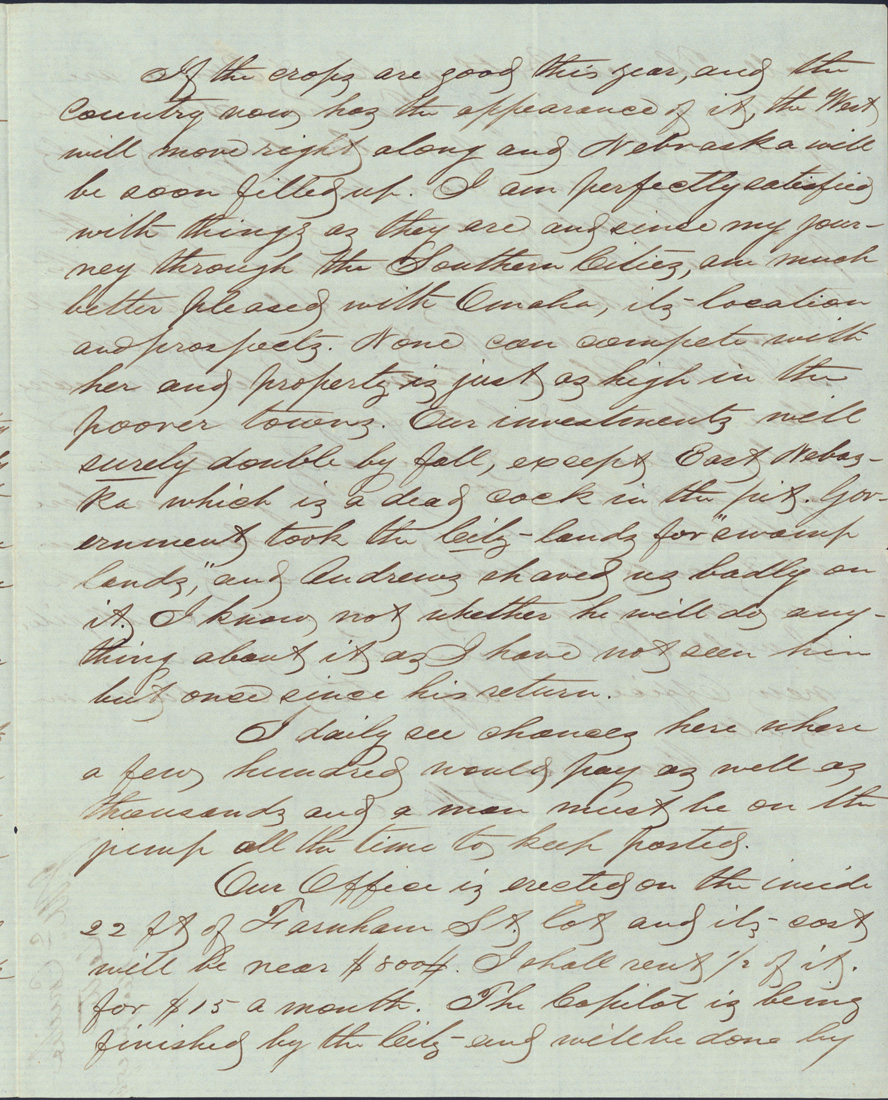 If the crops are good this year, and the
Country now has the appearance of it, the West
will move right along and Nebraska will
be soon filled up. I am perfectly satisfied
with things as they are and since my jour-
ney through the Southern Cities, am much
better pleased with Omaha, its location
and prospects. None can compete with
her and property is just as high in the
poorer towns. Our investments will
surely double by fall, except East Nebas-
ka which is a dead cock in the pit. Gov-
ernment took the City lands for "swamp
lands," and Andrews shaved us badly on
it. I know not whether he will do any-
thing about it as I have not seen him
but once since his return.
I daily see chances here where
a few hundred would pay as well as
thousands and a man must be on the
jump all the time to keep posted.
Our Office is erected on the inside
22 ft of Farnham St. lot and its cost
will be near $800. I shall rent 1/2 of it.
for $15 a month. The Capitol is being
finished by the City and will be done by